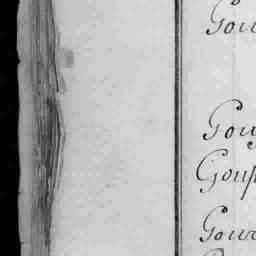 Gou
Gou
Goup
Gour